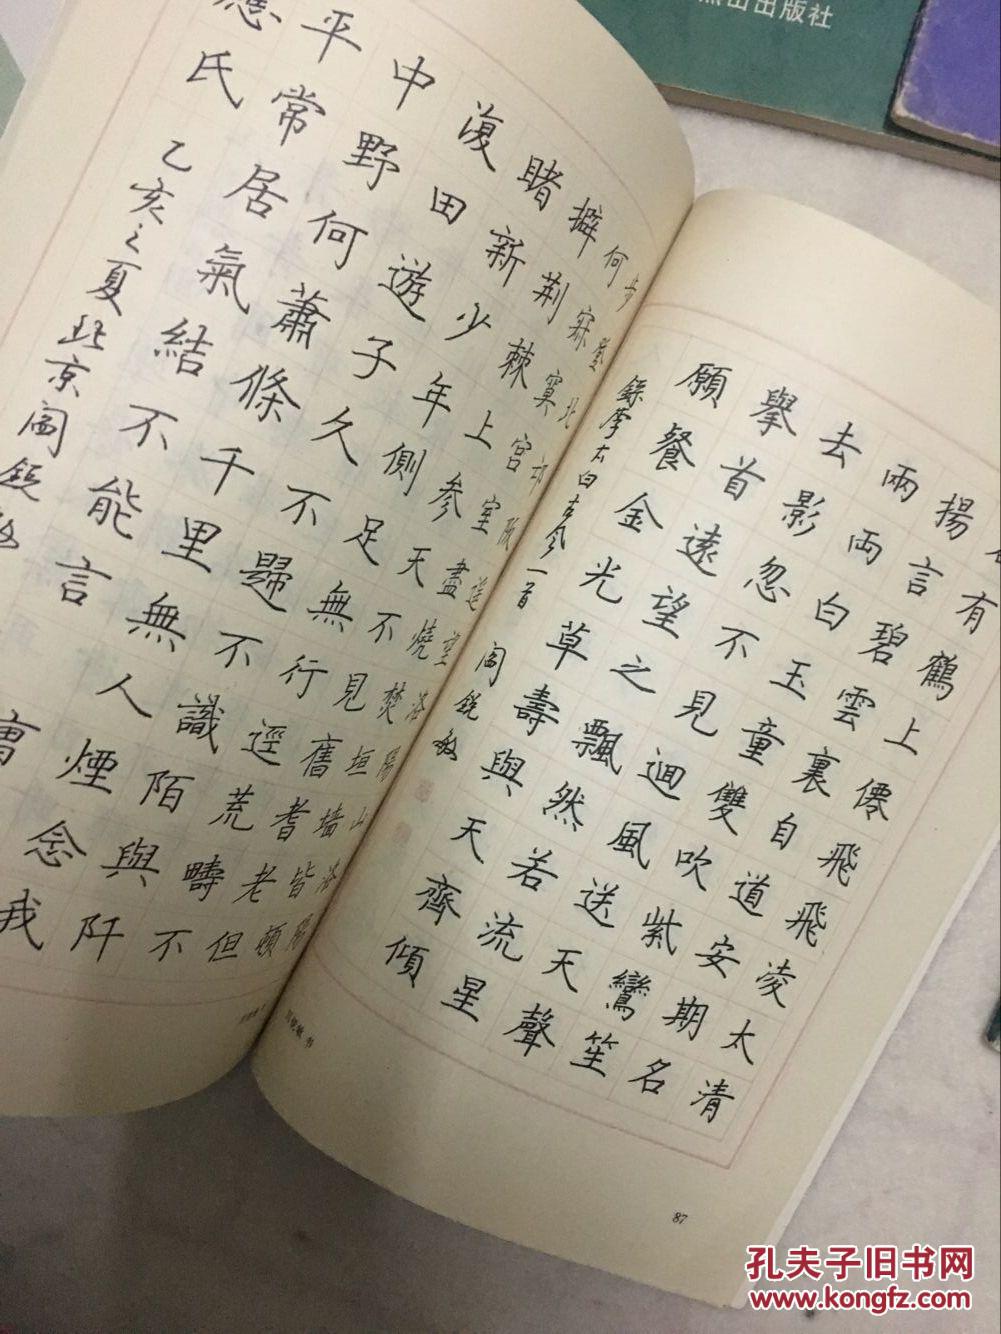 燕山出版社
有鶴上僊飛飛凌太清
揚言碧雲裏自道安期名
兩兩白玉童雙吹紫鸞笙
去影忽不見迴風送天聲
舉首遠望之飄然若流星
願餐金光草壽與天齊傾
錄李太白古風一首 閻銳敏
87
步登北邙阪遙望洛陽山洛陽
何寂寞宮室盡燒焚垣墻皆頓
擗荊棘上參天不見舊耆老但
睹新少年側足無行逕荒疇不
復田遊子久不歸不識陌與阡
中野何蕭條千里無人煙念我
平常居氣結不能言 曹
應氏 乙亥之夏北京閻銳敏
孔夫子旧书网
www.kongfz.com